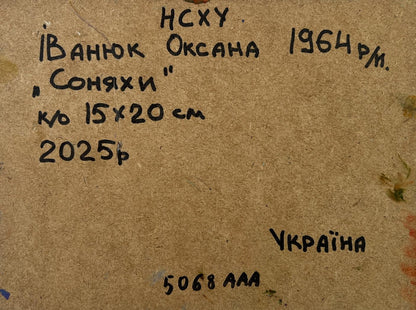 НСХУ
Іванюк Оксана 1964 р/н.
„Соняхи"
к/о 15х20 см
2025р
Україна
5068 ААА